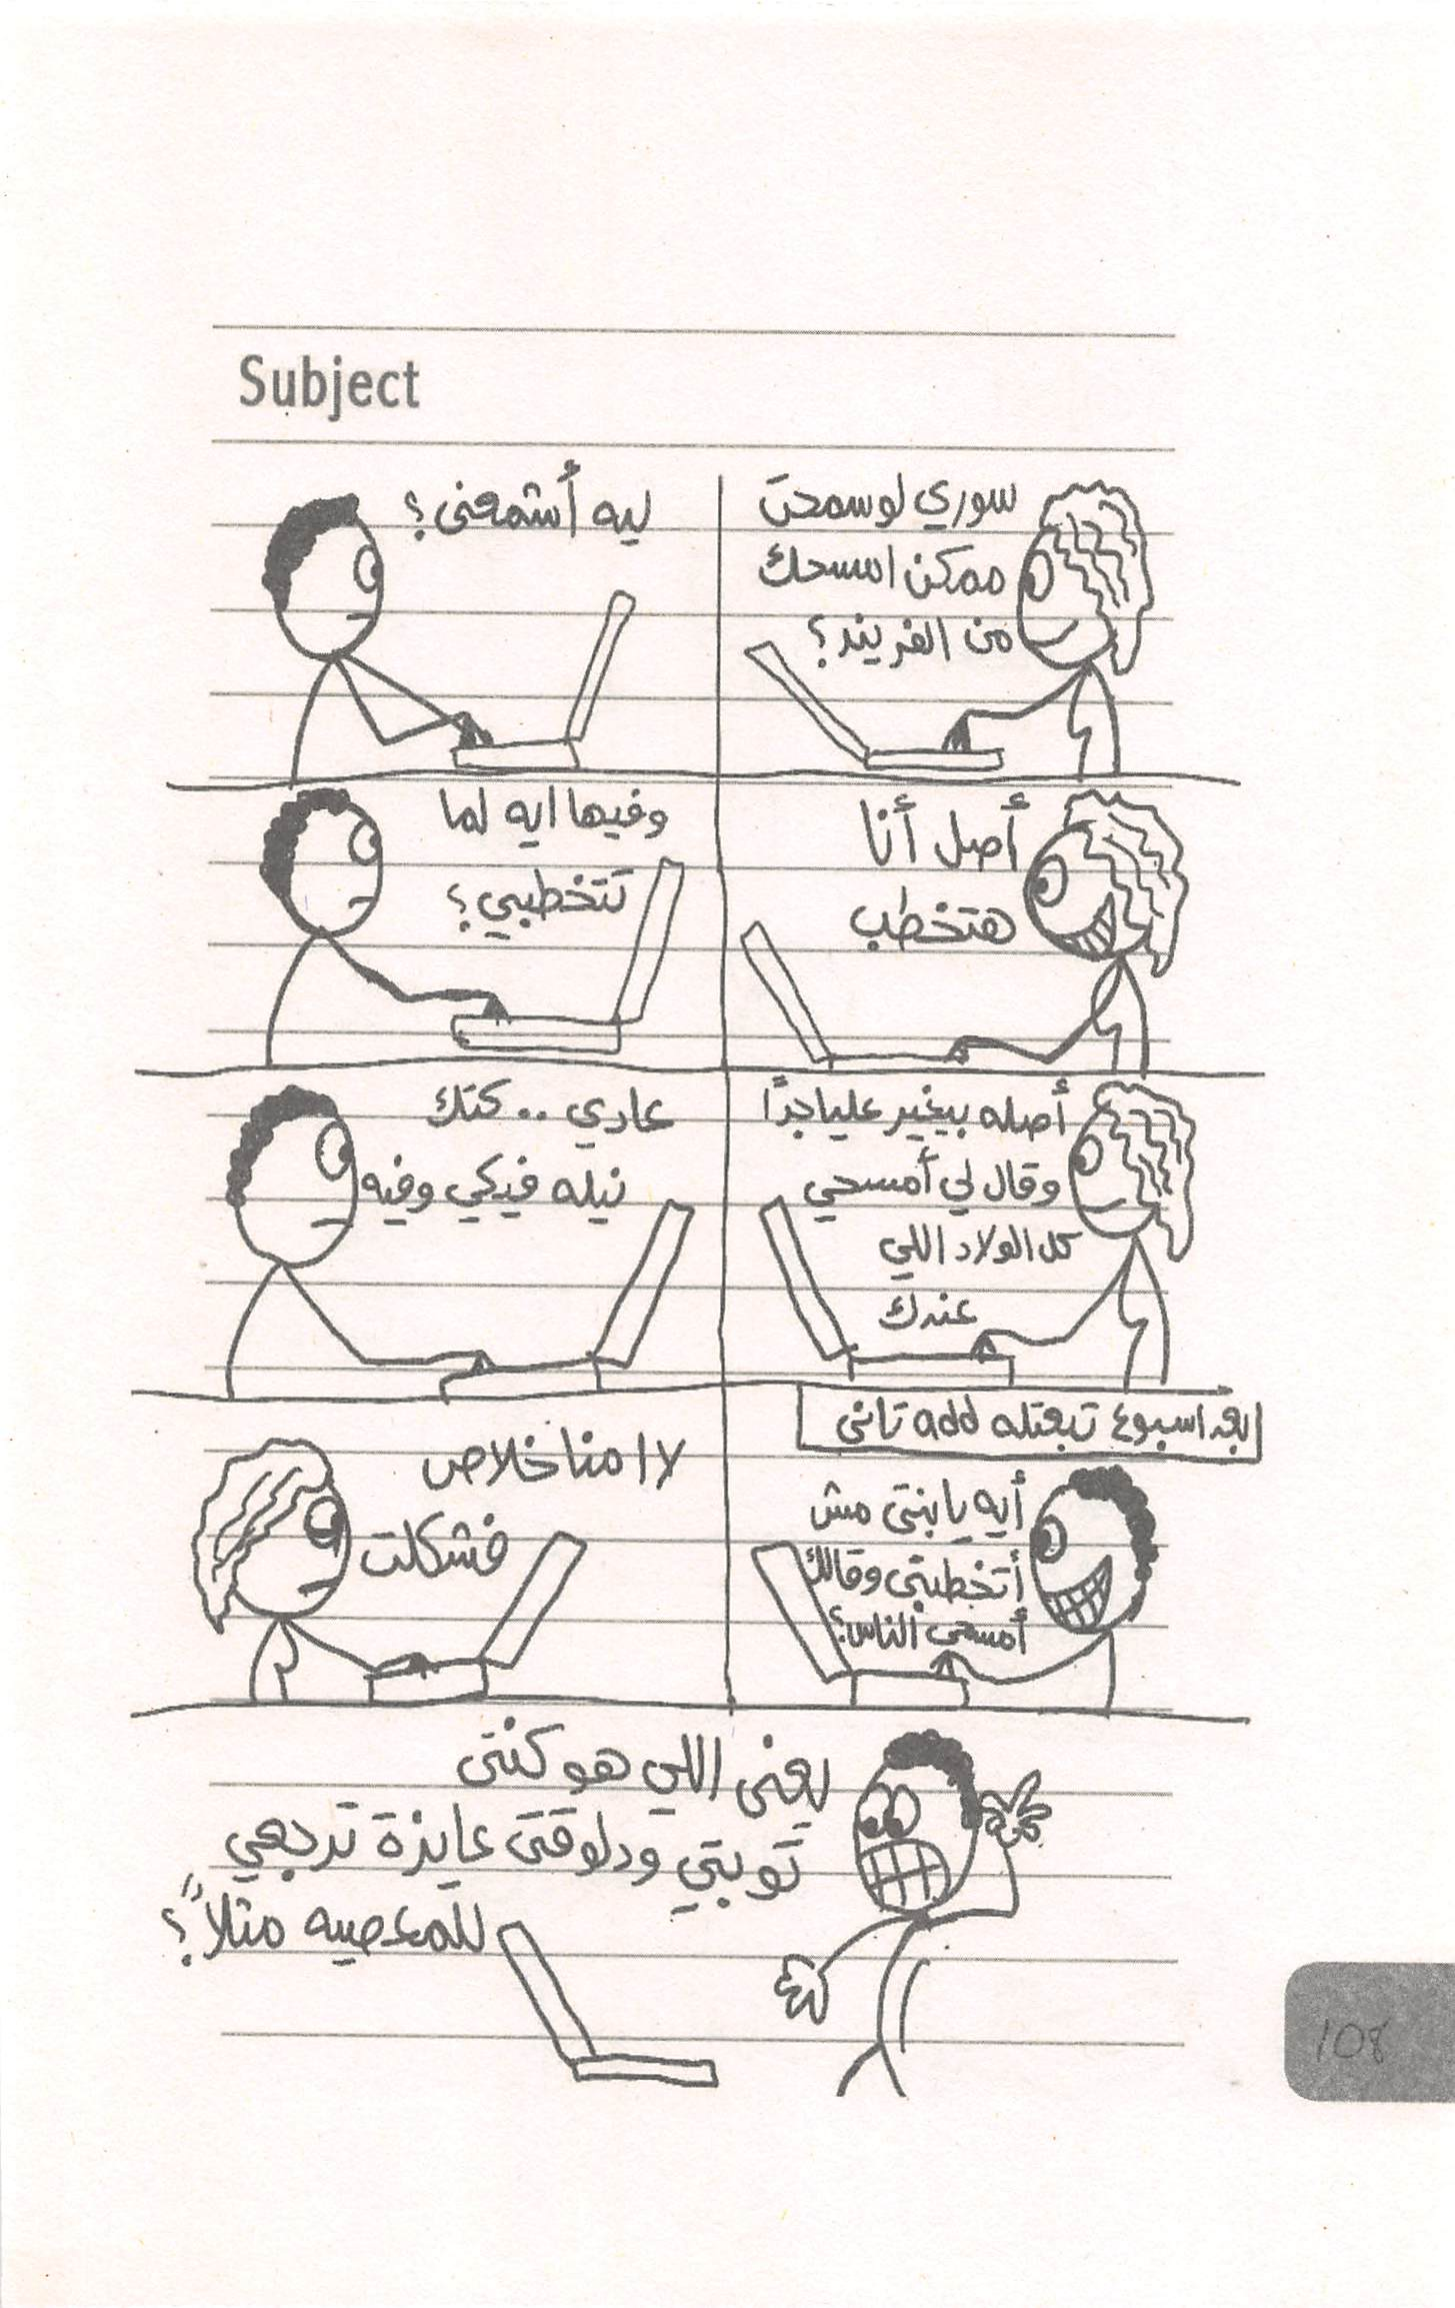 Subject
سوري لو سمحت
ممكن امسحك
من الفريند؟
ليه أشمعنى؟
أصل أنا
هتخطب
وفيها ايه لما
تتخطبي؟
أصله بيغير عليا جدًا
وقال لي أمسحي
كل الولاد اللي
عندك
عادي .. كتك
نيله فيكي وفيه
بعد اسبوع تبعتله add تانى
أيه يا بنتى مش
أتخطبتى وقالك
أمسحى الناس؟
لا ا منا خلاص
فشكلت
يعنى اللي هو كنتى
توبتي ودلوقتى عايزة ترجعي
للمعصيه مثلاً؟
108